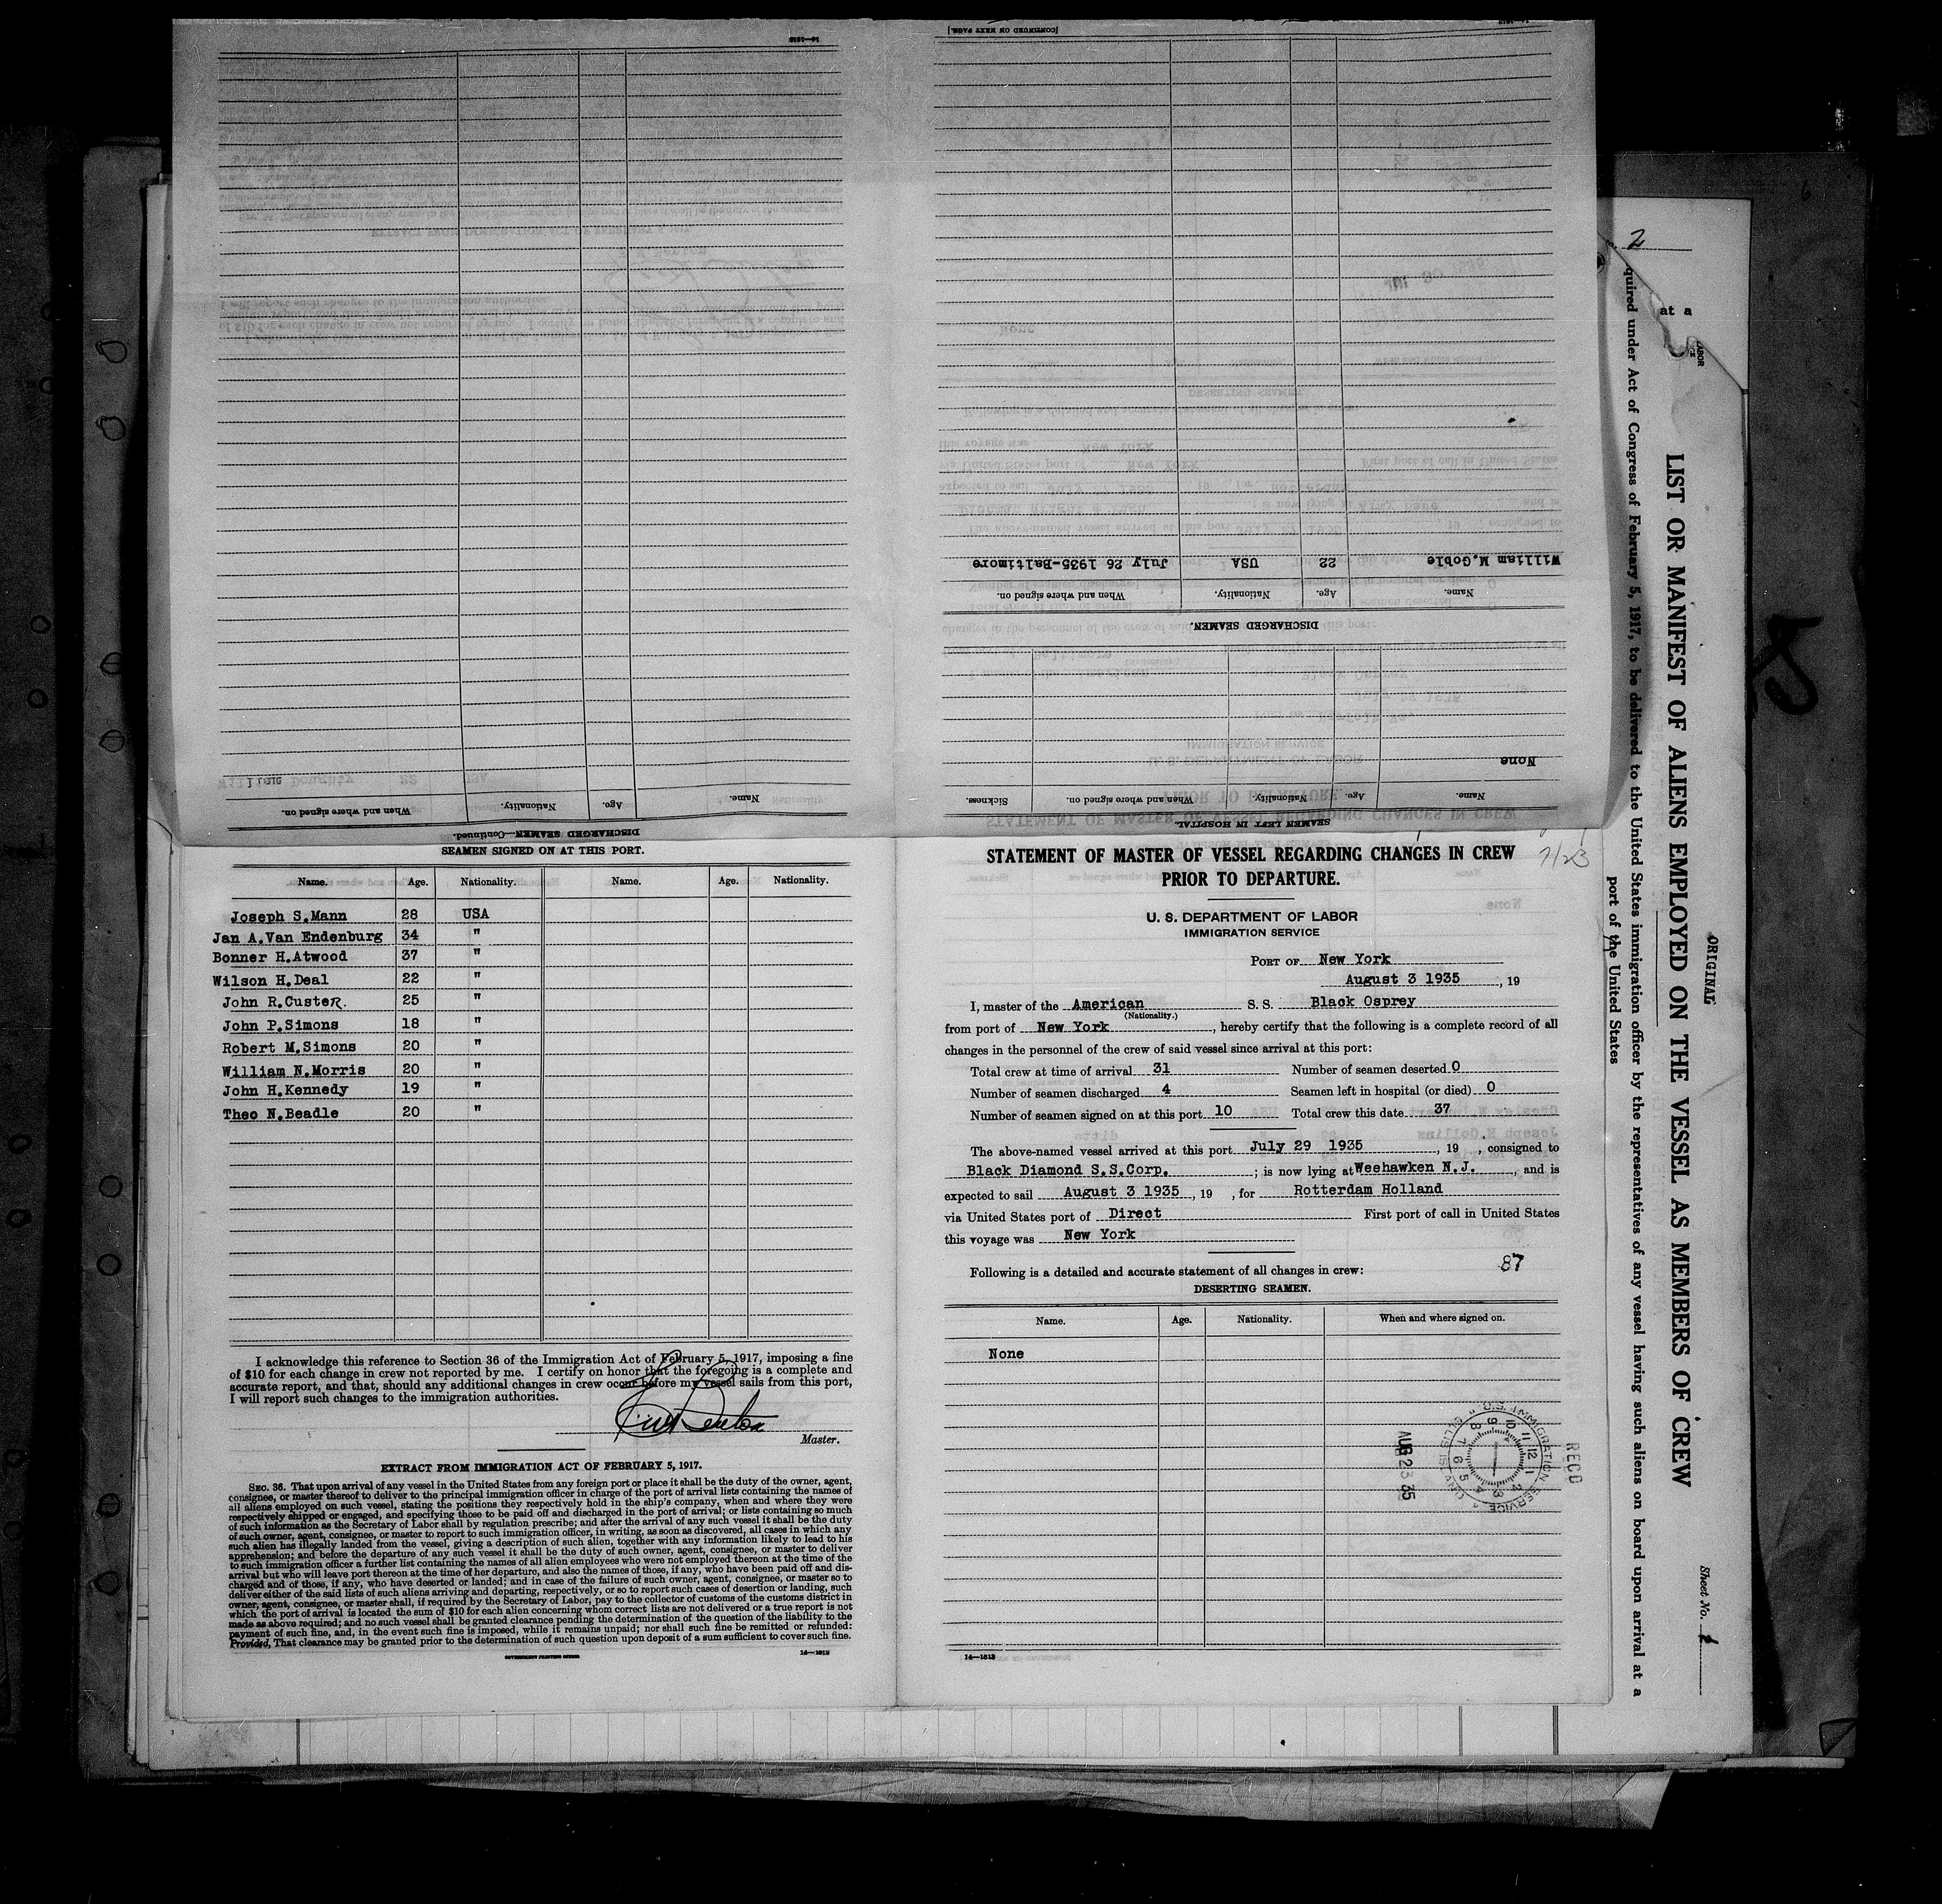 14—1513
[CONTINUED ON NEXT PAGE.]
William M.Goble 22 USA July 26 1935-Baltimore
Name. Age. Nationality. When and where signed on.
DISCHARGED SEAMEN.
None
Name. Age. Nationality. When and where signed on. Sickness.
SEAMEN LEFT IN HOSPITAL.
Name. Age. Nationality. When and where signed on.
DISCHARGED SEAMEN—Continued.
SEAMEN SIGNED ON AT THIS PORT.
Name. Age. Nationality. Name. Age. Nationality.
Joseph S.Mann 28 USA
Jan A.Van Endenburg 34 "
Bonner H.Atwood 37 "
Wilson H.Deal 22 "
John R.Custer. 25 "
John P.Simons 18 "
Robert M.Simons 20 "
William N.Morris 20 "
John H.Kennedy 19 "
Theo N.Beadle 20 "
I acknowledge this reference to Section 36 of the Immigration Act of February 5, 1917, imposing a fine
of $10 for each change in crew not reported by me. I certify on honor that the foregoing is a complete and
accurate report, and that, should any additional changes in crew occur before my vessel sails from this port,
I will report such changes to the immigration authorities.
Master.
EXTRACT FROM IMMIGRATION ACT OF FEBRUARY 5, 1917.
SEC. 36. That upon arrival of any vessel in the United States from any foreign port or place it shall be the duty of the owner, agent,
consignee, or master thereof to deliver to the principal immigration officer in charge of the port of arrival lists containing the names of
all aliens employed on such vessel, stating the positions they respectively hold in the ship's company, when and where they were
respectively shipped or engaged, and specifying those to be paid off and discharged in the port of arrival; or lists containing so much
of such information as the Secretary of Labor shall by regulation prescribe; and after the arrival of any such vessel it shall be the duty
of such owner, agent, consignee, or master to report to such immigration officer, in writing, as soon as discovered, all cases in which any
such alien has illegally landed from the vessel, giving a description of such alien, together with any information likely to lead to his
apprehension; and before the departure of any such vessel it shall be the duty of such owner, agent, consignee, or master to deliver
to such immigration officer a further list containing the names of all alien employees who were not employed thereon at the time of the
arrival but who will leave port thereon at the time of her departure, and also the names of those, if any, who have been paid off and dis-
charged and of those, if any, who have deserted or landed; and in case of the failure of such owner, agent, consignee, or master so to
deliver either of the said lists of such aliens arriving and departing, respectively, or so to report such cases of desertion or landing, such
owner, agent, consignee, or master shall, if required by the Secretary of Labor, pay to the collector of customs of the customs district in
which the port of arrival is located the sum of $10 for each alien concerning whom correct lists are not delivered or a true report is not
made as above required; and no such vessel shall be granted clearance pending the determination of the question of the liability to the
payment of such fine, and, in the event such fine is imposed, while it remains unpaid; nor shall such fine be remitted or refunded:
Provided, That clearance may be granted prior to the determination of such question upon deposit of a sum sufficient to cover such fine.
GOVERNMENT PRINTING OFFICE 14—1513
STATEMENT OF MASTER OF VESSEL REGARDING CHANGES IN CREW
PRIOR TO DEPARTURE.
U. S. DEPARTMENT OF LABOR
IMMIGRATION SERVICE
PORT OF New York
August 3 1935, 19
I, master of the American S. S. Black Osprey
(Nationality.)
from port of New York, hereby certify that the following is a complete record of all
changes in the personnel of the crew of said vessel since arrival at this port:
Total crew at time of arrival 31 Number of seamen deserted 0
Number of seamen discharged 4 Seamen left in hospital (or died) 0
Number of seamen signed on at this port 10 Total crew this date 37
The above-named vessel arrived at this port July 29 1935, 19 , consigned to
Black Diamond S.S.Corp. ; is now lying at Weehawken N.J. , and is
expected to sail August 3 1935 , 19 , for Rotterdam Holland
via United States port of Direct First port of call in United States
this voyage was New York
87
Following is a detailed and accurate statement of all changes in crew:
DESERTING SEAMEN.
Name. Age. Nationality. When and where signed on.
None
REC'D
U.S. IMMIGRATION SERVICE
ELLIS ISLAND
AUG 23 35
14—1513
2
at a
ORIGINAL
Sheet No. 1
LIST OR MANIFEST OF ALIENS EMPLOYED ON THE VESSEL AS MEMBERS OF CREW
quired under Act of Congress of February 5, 1917, to be delivered to the United States immigration officer by the representatives of any vessel having such aliens on board upon arrival at a
port of the United States